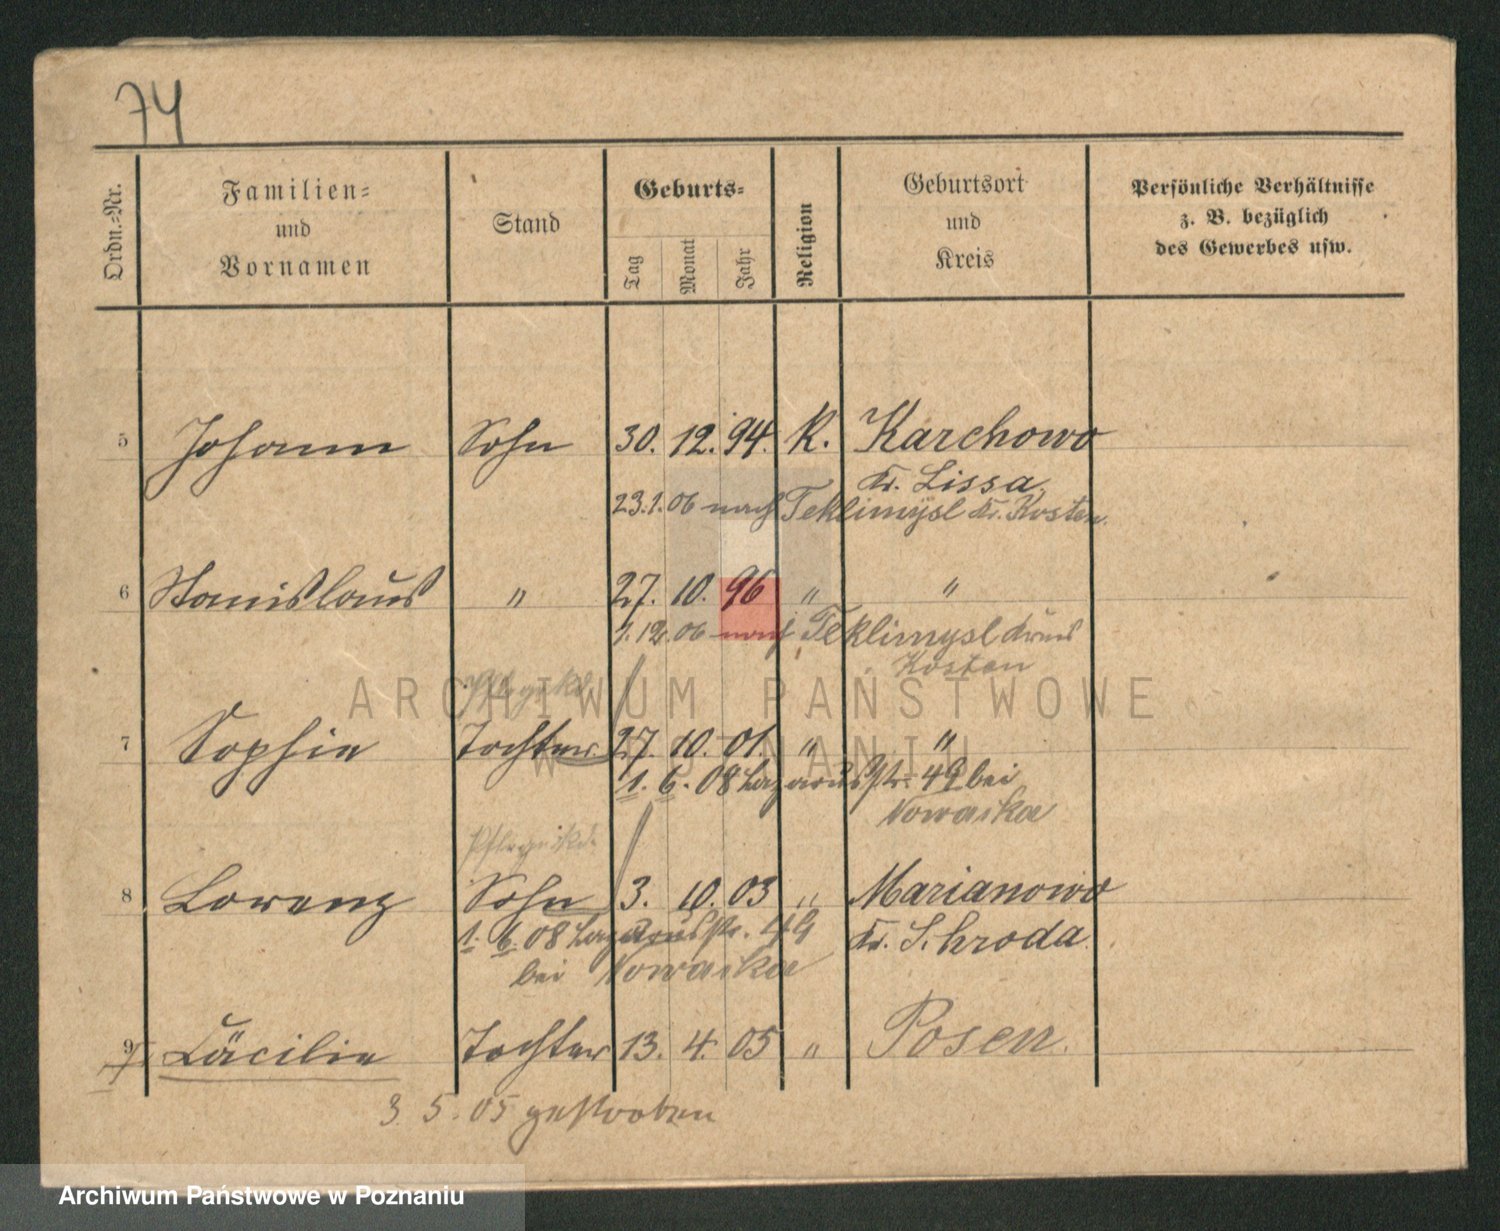 74
Ordn.-Nr.
Familien-
und
Vornamen
Stand
Geburts-
Tag
Monat
Jahr
Religion
Geburtsort
und
Kreis
Persönliche Verhältnisse
z. B. bezüglich
des Gewerbes usw.
5 Johann Sohn 30. 12. 94. K. Karchowo
Kr. Lissa.
23.1.06 nach Teklimysl Kr. Kosten.
6 Stanislaus " 27. 10. 96 " "
1.12.06 nach Teklimysl Kreis
Kosten
Pflegekd.
7 Sophie Tochter 27. 10. 01. " "
1. 6. 08 Lazarusstr. 49 bei
Nowaska
Pflegekd.
8 Lorenz Sohn 3. 10. 03 " Marianowo
1. 6. 08 Lazarusstr. 49 Kr. Schroda.
bei Nowaska
9 Cäcilie Tochter 13. 4. 05 " Posen.
3. 5. 05 gestorben
ARCHIWUM PAŃSTWOWE
W POZNANIU
Archiwum Państwowe w Poznaniu